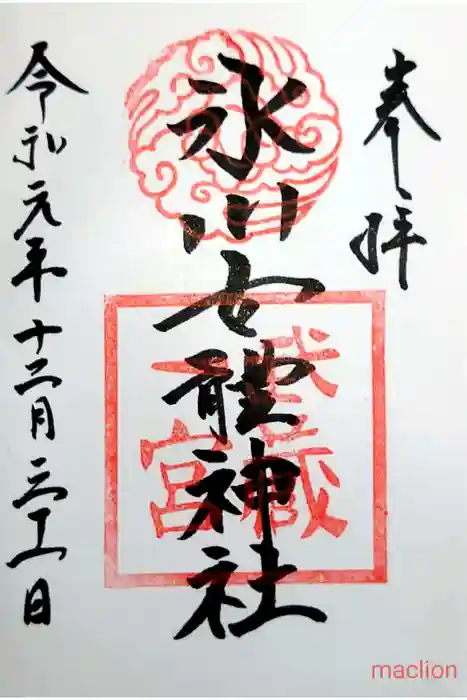 奉拝
氷川女體神社
武蔵
一宮
令和元年十二月三十一日
maclion